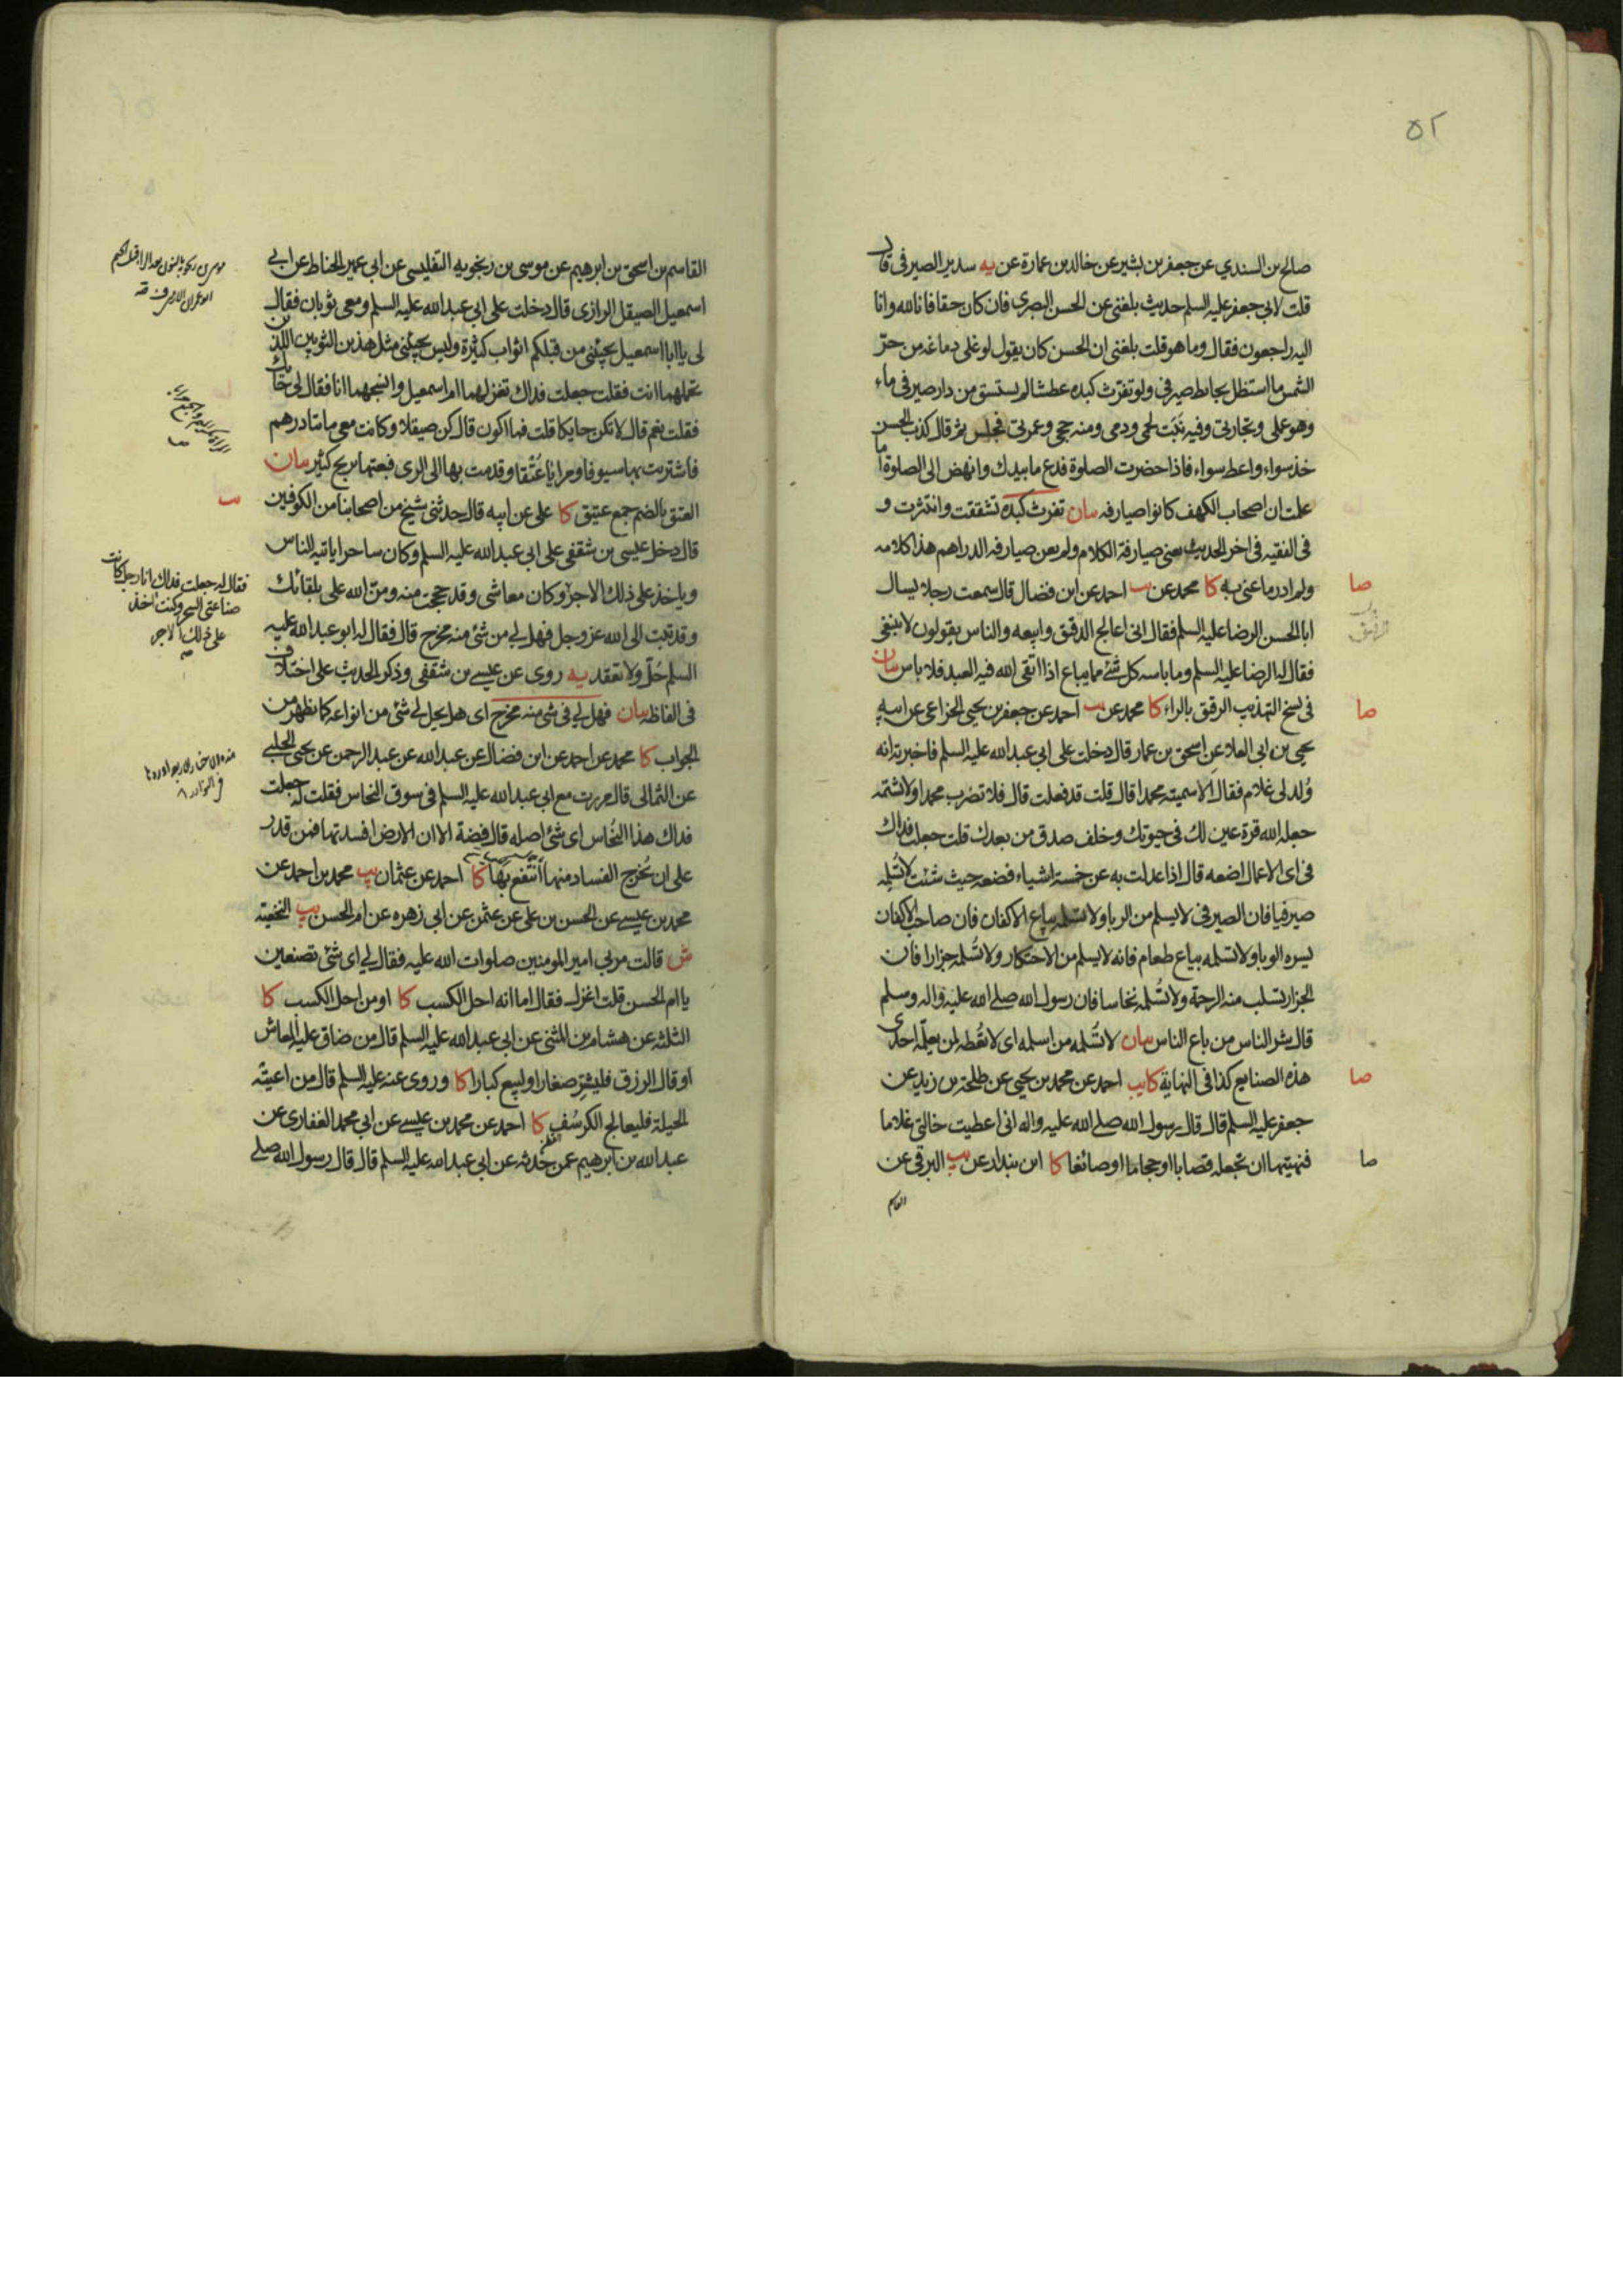 ٥٢
صالح بن السندي عن جعفر بن بشير عن خالد بن عمارة عن يه سدير الصيرفي قال
قلت لابي جعفر عليه السلم حديث بلغني عن الحسن البصري فان كان حقا فانا لله وانا
اليه راجعون فقال وما هو قلت بلغني ان الحسن كان يقول لو غلى دماغه من حرّ
الشمس ما استظل بحايط صيرفي ولو تفرث كبده عطشا لم يستسق من دار صيرفي ماء
وهو عملي وتجارتي وفيه نَبَت لحمي ودمي ومنه حجي وعمرتي فجلس ثم قال كذب الحسن
خذ سواء واعط سواء فاذا حضرت الصلوة فدع ما بيدك وانهض الى الصلوة اما
علمت ان اصحاب الكهف كانوا صيارفه بيان تفرث كبده تشققت وانتثرت و
في الفقيه في اخر الحديث يعني صيارفة الكلام ولم يعن صيارفه الدراهم هذا كلامه
ولم ادر ما عنى به كا محمد عن يب احمد عن ابن فضال قال سمعت رجلا يسال
ابا الحسن الرضا عليه السلم فقال اني اعالج الدقيق وابيعه والناس يقولون لا ينبغي
فقال له الرضا عليه السلم وما باسه كل شئ مما يباع اذا اتقى الله فيه العبد فلا باس بيان
في نسخ التهذيب الرقيق بالراء كا محمد عن يب احمد عن جعفر بن يحيى الخزاعي عن ابيه
يحيى بن ابي العلا عن اسحق بن عمار قال دخلت على ابي عبد الله عليه السلم فاخبرته انه
وُلد لي غلام فقال الا سميته محمدا قال قلت قد فعلت قال فلا تضرب محمدا ولا تشتمه
جعله الله قرة عين لك في حيوتك وخلف صدق من بعدك قلت جعلت فداك
في اي الاعمال اضعه قال اذا عدلت به عن خمسة اشياء فضعه حيث شئت لا تُسلمه
صيرفيا فان الصيرفي لا يسلم من الربا ولا تسلمه بياع الاكفان فان صاحب الاكفان
يسره الوبا ولا تسلمه بياع طعام فانه لا يسلم من الاحتكار ولا تُسلمه جزارا فان
الجزار تسلب منه الرحمة ولا تُسلمه نخاسا فان رسول الله صلى الله عليه واله وسلم
قال شر الناس من باع الناس بيان لا تُسلمه من اسلمه اي لا تعُطه لمن يعلّمه احدى
هذه الصنايع كذا في النهاية كا يب احمد عن محمد بن يحيى عن طلحة بن زيد عن
جعفر عليه السلم قال قال رسول الله صلى الله عليه واله اني اعطيت خالتي غلاما
فنهيتها ان تجعله قصابا او حجاما او صائغا كا ابن بندار عن يب البرقي عن
القاسم
صا
صا
صا
صا
القاسم بن اسحق بن ابرهيم عن موسى بن زنجويه التفليسي عن ابي عمير الحناط عن ابي
اسمعيل الصيقل الرازي قال دخلت على ابي عبد الله عليه السلم ومعي ثوبان فقال
لي يا ابا اسمعيل يجيئني من قبلكم اثواب كثيرة وليس يجيئني مثل هذين الثوبين اللذين
تحملهما انت فقلت جعلت فداك تغزلهما ام اسمعيل وانسجهما انا فقال لي حائك
فقلت نعم قال لا تكن حايكا قلت فما اكون قال كن صيقلا وكانت معي مائتا درهم
فاشتريت بها سيوفا ومرايا عُتُقا وقدمت بها الى الري فبعتها بربح كثير بيان
العتق بالضم جمع عتيق كا علي عن ابيه قال حدثني شيخ من اصحابنا من الكوفيين
قال دخل عيسى بن شقفي على ابي عبد الله عليه السلم وكان ساحرا ياتيه الناس
وياخذ على ذلك الاجر وكان معاشي وقد حججت منه ومنّ الله علي بلقائك
وقد تبت الى الله عز وجل فهل لي من شئ منه مخرج قال فقال له ابو عبد الله عليه
السلم حُلّ ولا تعقد يه روى عن عيسى بن شقفي وذكر الحديث على اختلاف
في الفاظه بيان فهل لي في شئ منه مخرج اي هل يحل لي شئ من انواعه كما يظهر من
الجواب كا محمد عن احمد عن ابن فضال عن عبد الله عن عبد الرحمن عن يحيى الحلبي
عن الثمالي قال مررت مع ابي عبد الله عليه السلم في سوق النحاس فقلت له جعلت
فداك هذا النُحاس اي شئ اصله قال فضة الا ان الارض افسدتها فمن قدر
على ان يُخرج الفساد منها انتفع بها كا احمد عن عثمان يب محمد بن احمد عن
محمد بن عيسى عن الحسن بن علي عن عثمن عن ابي زهره عن ام الحسن يب النخعية
ش قالت مر بي امير المومنين صلوات الله عليه فقال لي اي شئ تصنعين
يا ام الحسن قلت اغزل فقال اما انه احل الكسب كا او من احل الكسب كا
الثلثه عن هشام بن المثنى عن ابي عبد الله عليه السلم قال من ضاق عليه المعاش
او قال الرزق فليشتر صغارا وليبع كبارا كا وروى عنه عليه السلم قال من اعيته
الحيلة فليعالج الكرسُف كا احمد عن محمد بن عيسى عن ابي محمد الغفاري عن
عبد الله بن ابرهيم عمن حدثه عن ابي عبد الله عليه السلم قال قال رسول الله صلى
فقال له جعلت فداك انا رجل كانت
صناعتي السحر وكنت اخذ
على ذلك الاجر